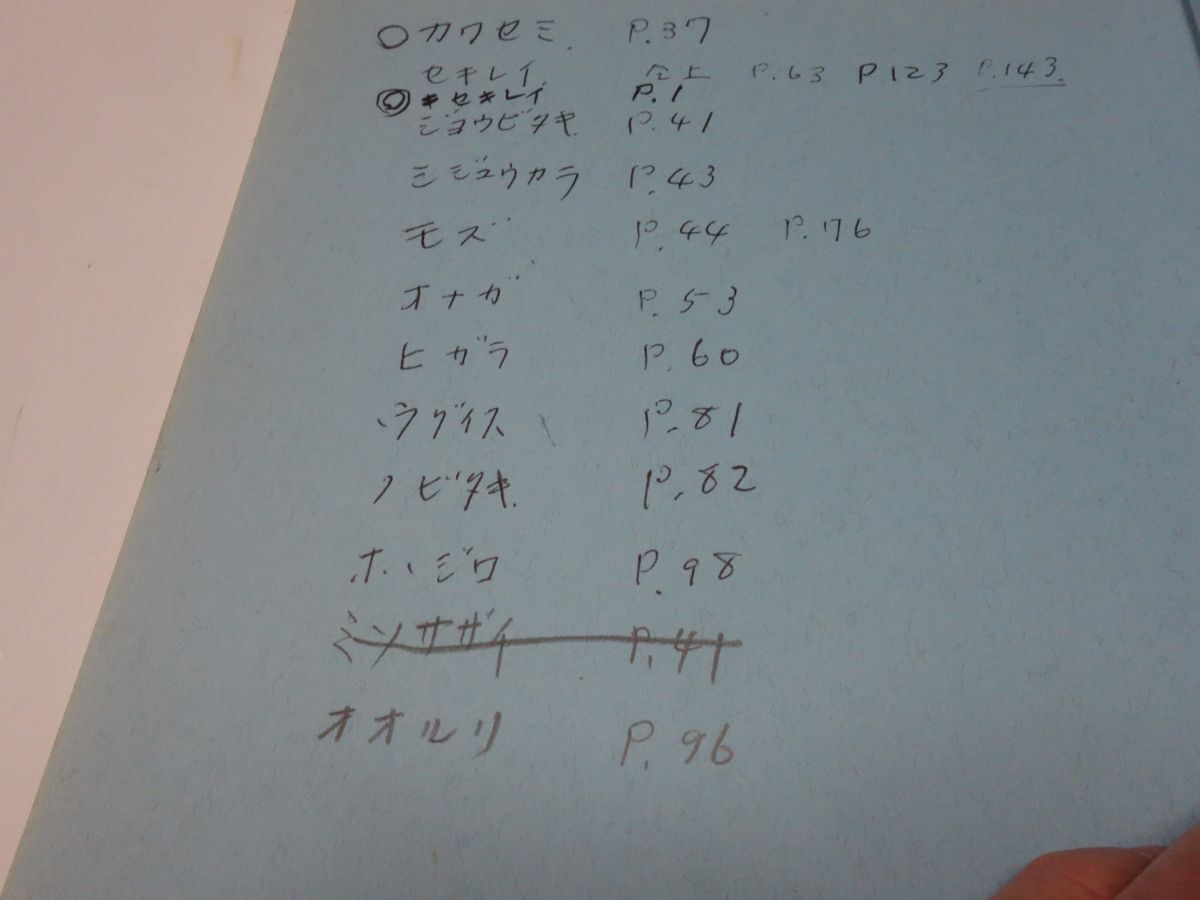 ○ カワセミ. P.37
セキレイ 仝上 P.63 P.123 P.143.
◎ キセキレイ P.1
ジョウビタキ. P.41
シジュウカラ P.43
モズ P.44 P.176
オナガ P.53
ヒガラ P.60
ウグイス P.81
ノビタキ. P.82
ホヽジロ P.98
ミソサザイ P.41
オオルリ P.96